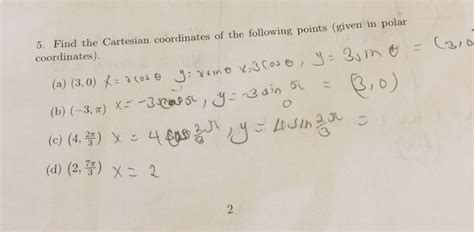 5. Find the Cartesian coordinates of the following points (given in polar
coordinates).
(a) (3, 0) x = r cos θ y = r sin θ x = 3 cos θ , y = 3 sin θ = (3, 0
(b) (−3, π) x = −3 cos π , y = −3 sin π = (3, 0)
(c) (4, 2π/3) x = 4 cos 2/3 π , y = 4 sin 2/3 π =
(d) (2, 7π/3) x = 2
2